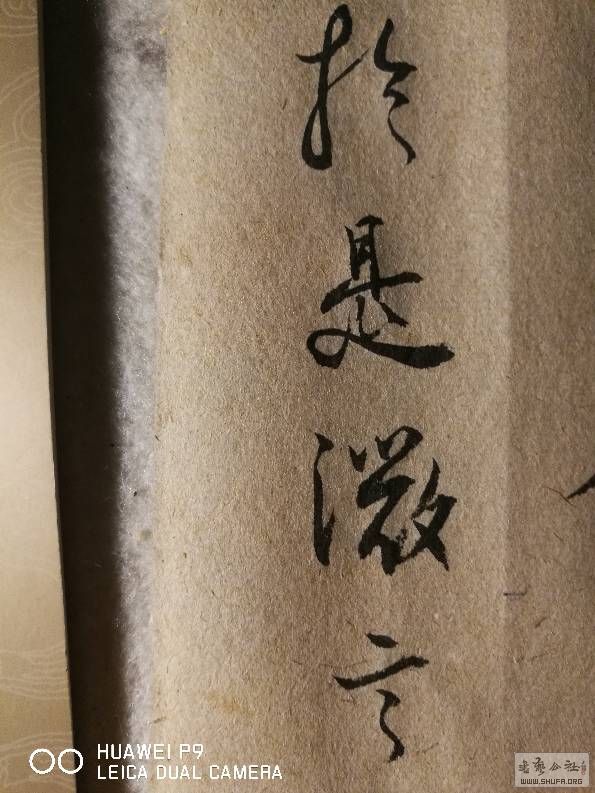 於是微言
HUAWEI P9
LEICA DUAL CAMERA
书艺公社
WWW.SHUFA.ORG